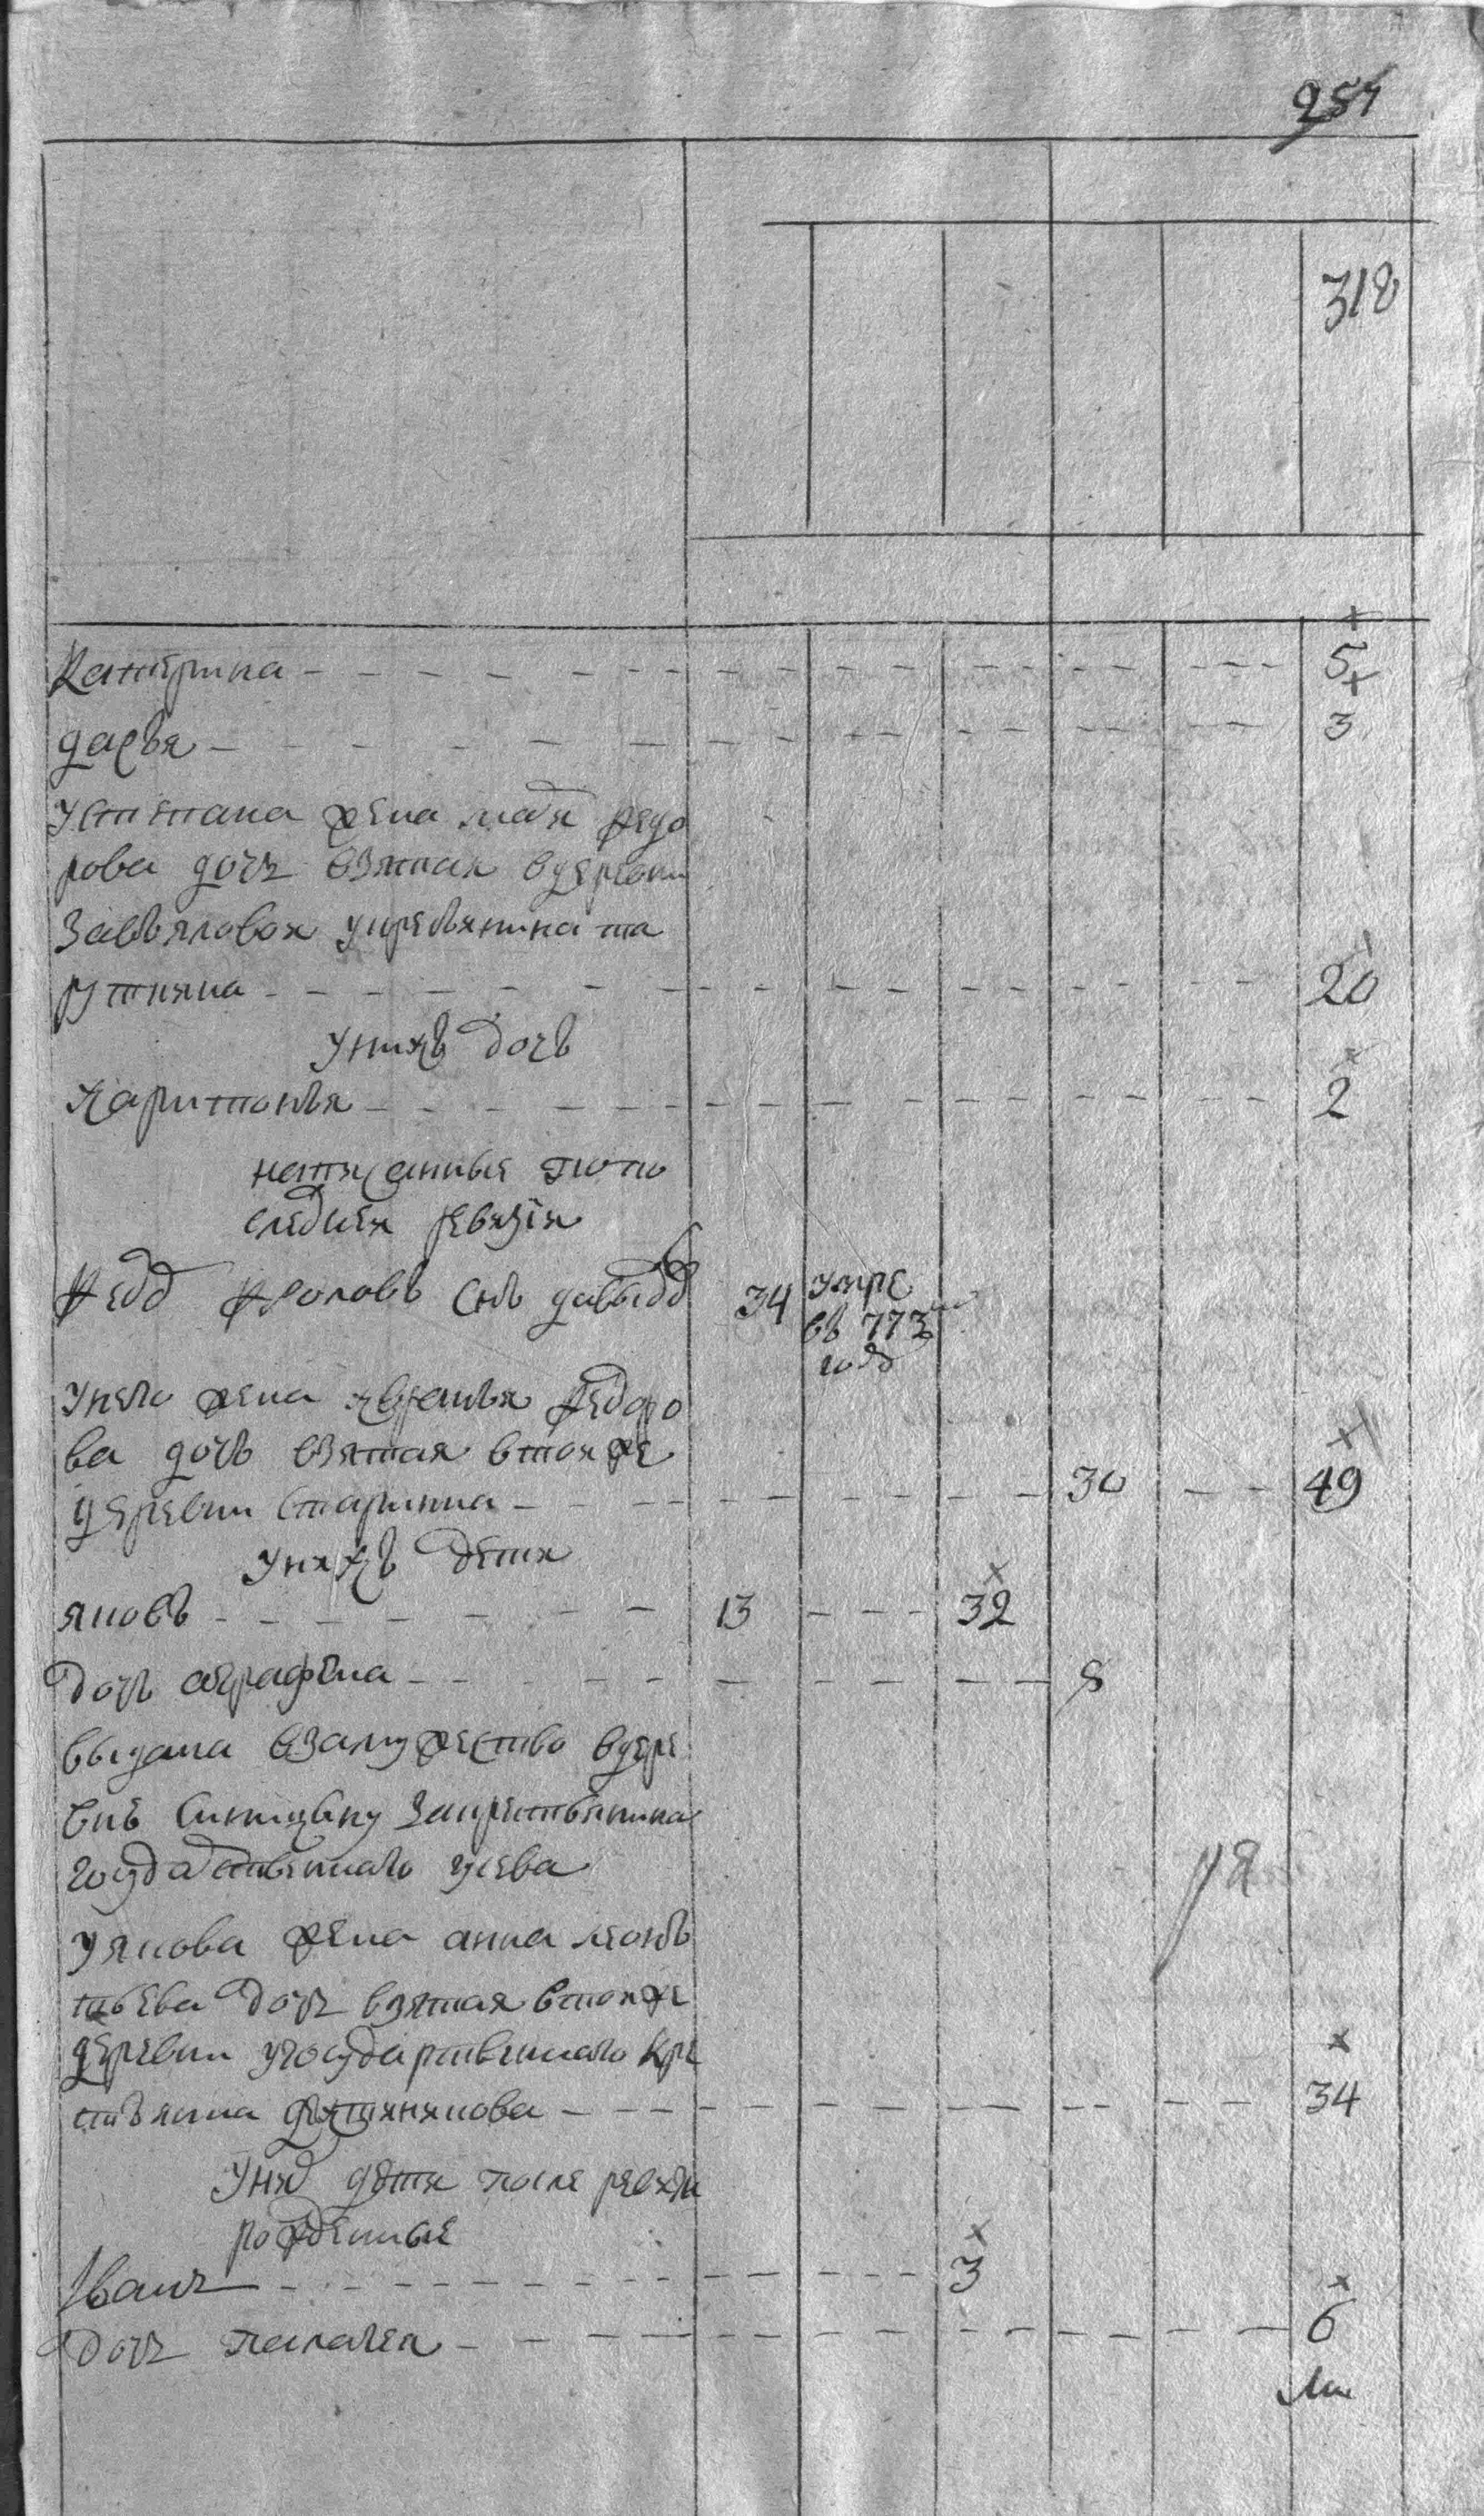 257
318
Катерина 5
дарья 3
Устепана жена мавя федо
рова дочь взятая вдеревни
Завьяловой укрестьянина та
рутняна 20
Унихъ дочь
харитонья 2
написанные попо
следней ревизiи
Федд Фроловъ снъ давыдд 34 умре
въ 773м
годд
Унего жена хвретья Федоро
ва дочь взятая втой же
деревни старинна 30 49
Унихъ дети
яковъ 13 32
дочь аграфена 8
выдана взамужество вдере
внѣ Синицыну Закрестьянина
государственнаго усева
Уякова жена анна леонь
тьева дочь взятая втой же
деревни угосударственнаго кре
стьянина 34
Уних дети после ревизи
рожденные
Иванъ 3
дочь палагея 6